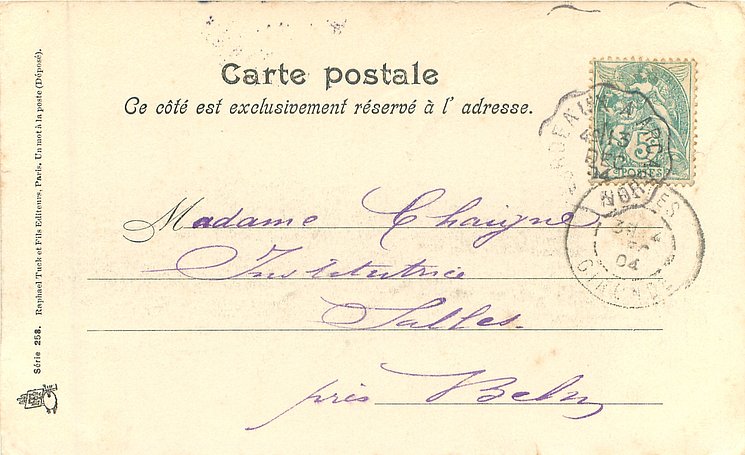 Carte postale
Ce côté est exclusivement réservé à l' adresse.
5
POSTES
13
DEC
04
GIRONDE
Madame Chaigne
Institutrice
Salles.
près Belin
Série 258. Raphael Tuck et Fils Editeurs, Paris. Un mot à la poste (Déposé).